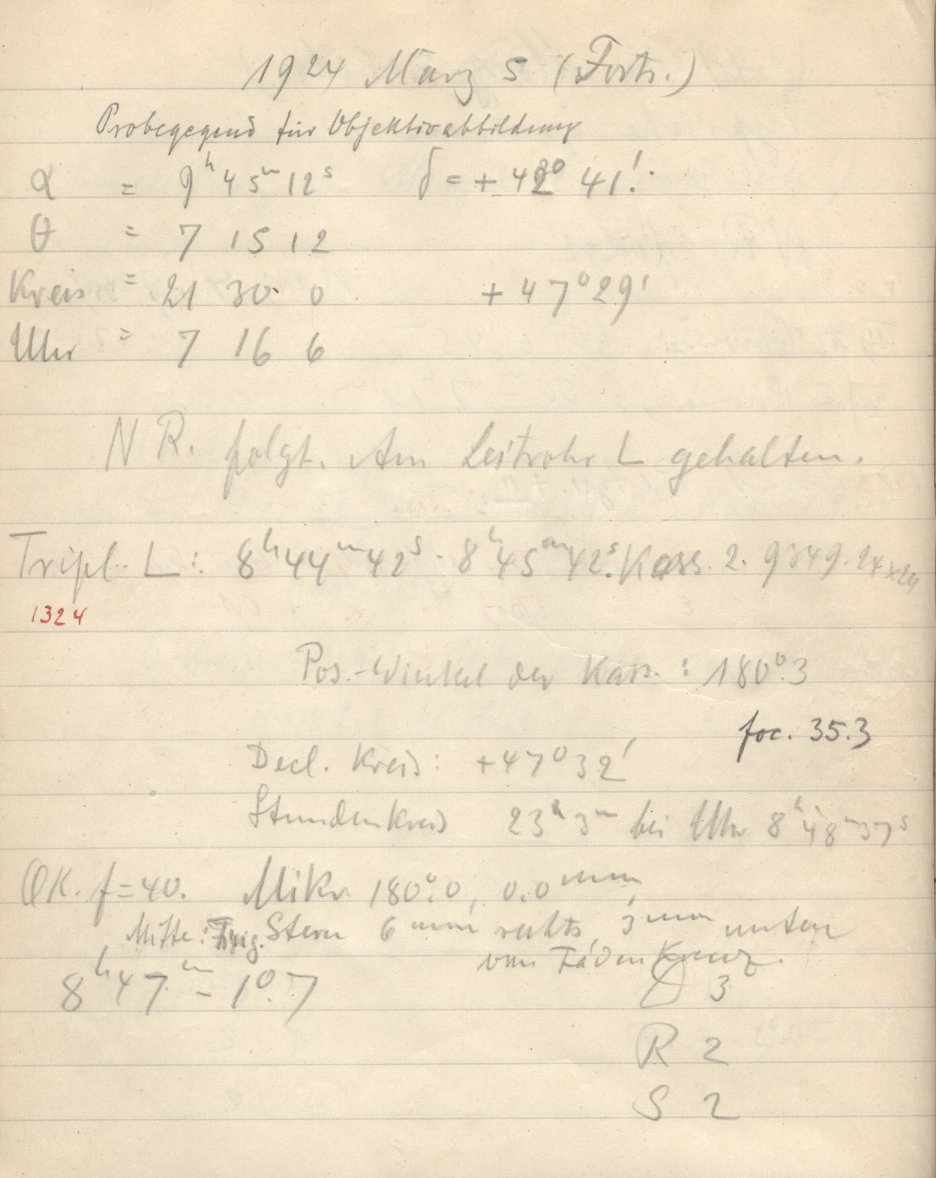 1924 März 5 (Forts.)
Probegegend für Objektivabbildung
α = 9ʰ 45ᵐ 12ˢ δ = + 42° 41'.
θ = 7 15 12
Kreis = 21 30. 0 + 47° 29'
Uhr = 7 16 6
N R. folgt. Am Leitrohr L gehalten.
Tripl. L: 8ʰ 44ᵐ 42ˢ - 8ʰ 45ᵐ 42ˢ. Kass. 2. 9349. 24x24
1324
Pos.-Winkel der Kass.: 180°.3
foc. 35.3
Decl. Kreis: +47° 32'
Stundenkreis 23ʰ 3ᵐ bei Uhr 8ʰ 48ᵐ 37ˢ
OK. f=40. Mikr 180°.0, 0.0ᵐᵐ
Mitte: Stern 6ᵐᵐ rechts 3ᵐᵐ unten
vom Fadenkreuz.
8ʰ 47ᵐ - 1°.7 D 3
R 2
S 2